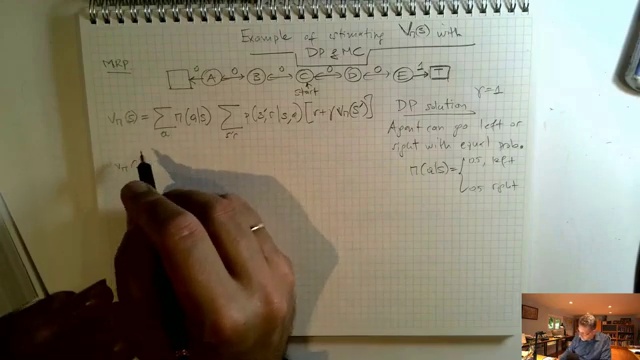 Example of estimating Vπ(s) with
DP & MC
MRP
0 0 0 0 0 1
A B C D E T
start
γ=1
Vπ(s) = Σ_a π(a|s) Σ_s',r p(s',r|s,a) [r + γ Vπ(s')]
DP solution
Agent can go left or
right with equal prob.
π(a|s) = { 0.5, left
0.5 right
Vπ(